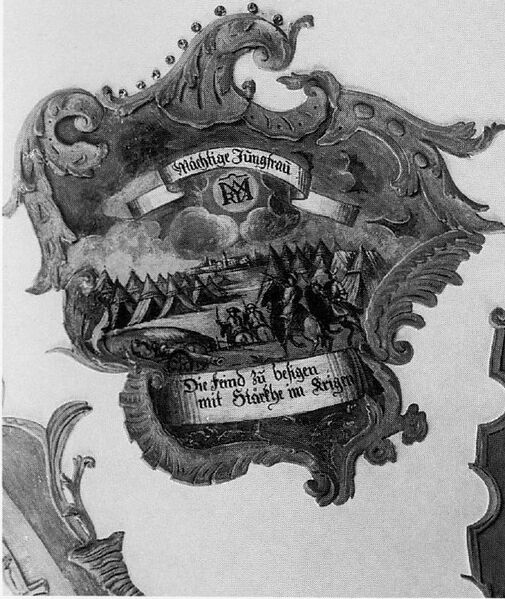 Mächtige Jungfrau
MARIA
Die Feind zu besigen
mit Stärkhe im Krigen